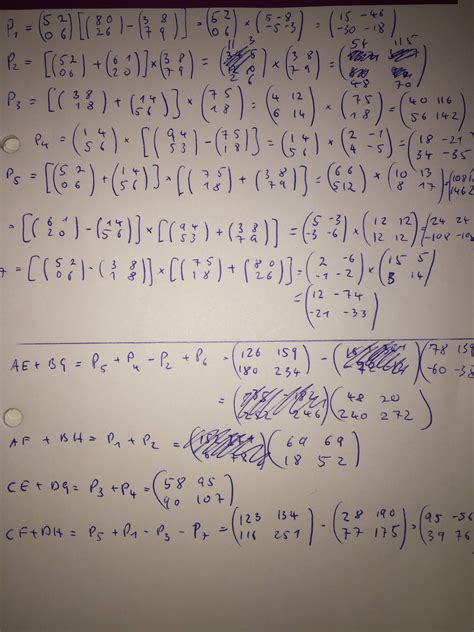 P1 = (5 2 / 0 6) [(8 0 / 2 6) - (3 8 / 7 9)] = (5 2 / 0 6) × (5 -8 / -5 -3) = (15 -46 / -30 -18)
P2 = [(5 2 / 0 6) + (6 1 / 2 0)] × (3 8 / 7 9) = (11 3 / 2 6) × (3 8 / 7 9) = (54 115 / 48 70)
P3 = [(3 8 / 1 8) + (1 4 / 5 6)] × (7 5 / 1 8) = (4 12 / 6 14) × (7 5 / 1 8) = (40 116 / 56 142)
P4 = (1 4 / 5 6) × [(9 4 / 5 3) - (7 5 / 1 8)] = (1 4 / 5 6) × (2 -1 / 4 -5) = (18 -21 / 34 -35)
P5 = [(5 2 / 0 6) + (1 4 / 5 6)] × [(7 5 / 1 8) + (3 8 / 7 9)] = (6 6 / 5 12) × (10 13 / 8 17) = (108 / 146
= [(6 1 / 2 0) - (1 4 / 5 6)] × [(9 4 / 5 3) + (3 8 / 7 9)] = (5 -3 / -3 -6) × (12 12 / 12 12) = (24 24 / -108 -108
7 = [(5 2 / 0 6) - (3 8 / 1 8)] × [(7 5 / 1 8) + (8 0 / 2 6)] = (2 -6 / -1 -2) × (15 5 / 3 14)
= (12 -74 / -21 -33)
AE + BG = P5 + P4 - P2 + P6 = (126 159 / 180 234) - (78 139 / -60 -38
= (48 20 / 240 272)
AF + BH = P1 + P2 = (69 69 / 18 52)
CE + DG = P3 + P4 = (58 95 / 90 107)
CF + DH = P5 + P1 - P3 - P7 = (123 134 / 116 251) - (28 190 / 77 175) = (95 -56 / 39 76